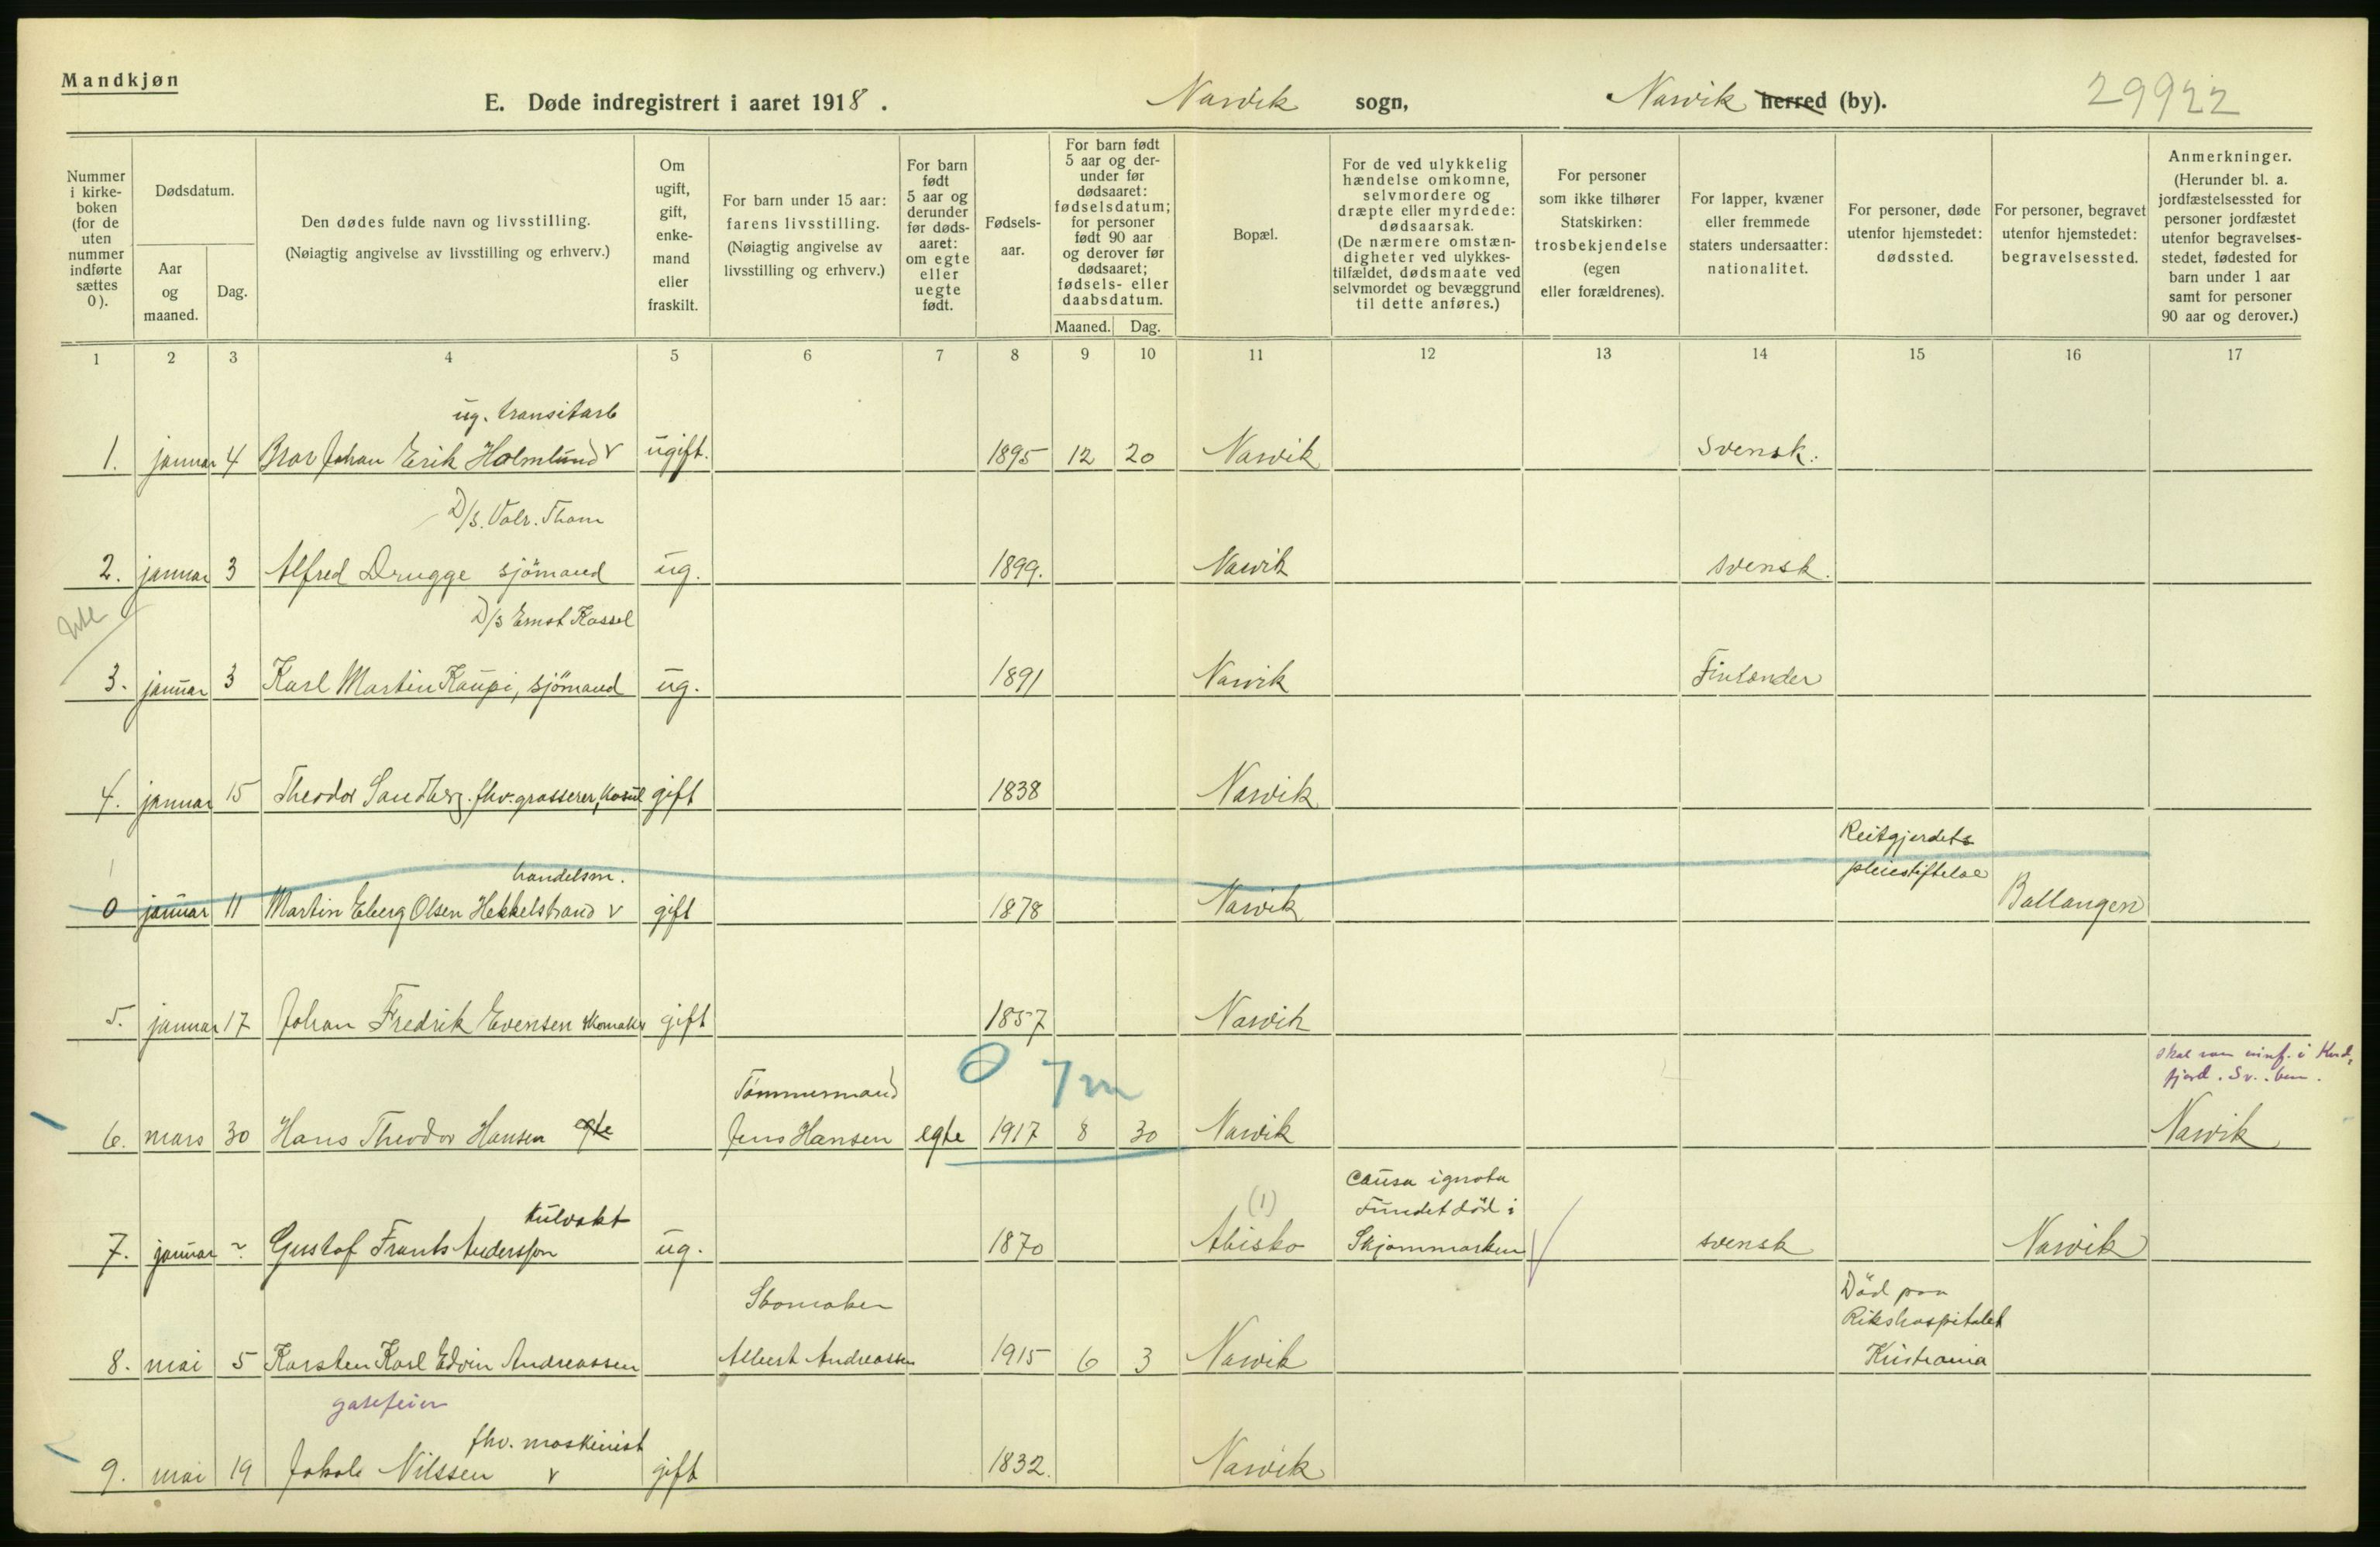 Mandkjøn
E. Døde indregistrert i aaret 1918.
Narvik sogn,
Narvik herred (by).
29922
Nummer i kirke-boken (for de uten nummer indførte sættes 0).
Dødsdatum.
Aar og maaned.
Dag.
Den dødes fulde navn og livsstilling.
(Nøiagtig angivelse av livsstilling og erhverv.)
Om ugift, gift, enke-mand eller fraskilt.
For barn under 15 aar: farens livsstilling.
(Nøiagtig angivelse av livsstilling og erhverv.)
For barn født 5 aar og derunder før døds-aaret: om egte eller uegte født.
Fødsels-aar.
For barn født 5 aar og der-under før dødsaaret: fødselsdatum; for personer født 90 aar og derover før dødsaaret; fødsels- eller daabsdatum.
Maaned. Dag.
Bopæl.
For de ved ulykkelig hændelse omkomne, selvmordere og dræpte eller myrdede: dødsaarsak.
(De nærmere omstæn-digheter ved ulykkes-tilfældet, dødsmaate ved selvmordet og bevæggrund til dette anføres.)
For personer som ikke tilhører Statskirken: trosbekjendelse (egen eller forældrenes).
For lapper, kvæner eller fremmede staters undersaatter: nationalitet.
For personer, døde utenfor hjemstedet: dødssted.
For personer, begravet utenfor hjemstedet: begravelsessted.
Anmerkninger.
(Herunder bl. a. jordfæstelsessted for personer jordfæstet utenfor begravelses-stedet, fødested for barn under 1 aar samt for personer 90 aar og derover.)
1 2 3 4 5 6 7 8 9 10 11 12 13 14 15 16 17
ug. transitarb
1. januar 4 Johan Erik Holmlund v ugift. 1895 12 20 Narvik Svensk.
D/S. Valr. Tham
2. januar 3 Alfred Drugge sjömand ug. 1899. Narvik svensk.
D/S Ernst Kassel
3. januar 3 Karl Martin Kaupi, sjömand ug. 1891 Narvik Finlænder
4. januar 15 Theodor Sandberg. fhv. grosserer, gift 1838 Narvik
handelsm.
Reitgjerdets
pleiestiftelse
0 januar 11 Martin Olsen Hekkelstrand v gift 1878 Narvik Ballangen
5. januar 17 Johan Fredrik Evensen skomaker gift 1857 Narvik
0 7m
Tömmermand
6. mars 30 Hans Theodor Hansen egte Jens Hansen egte 1917 8 30 Narvik Narvik
(1)
Causa ignota
Fundet död i
kulvakt
7. januar ~ Gustaf Frants Andersson ug. 1870 Abisko Skjommarken svensk Narvik
Död paa
Rikshospitalet
Skomaker
8. mai 5 Karsten Karl Edvin Andreassen Albert Andreassen 1915 6 3 Narvik Kristiania
gatefeier
fhv. maskinist
9. mai 19 Jakob Nilssen v gift 1832. Narvik